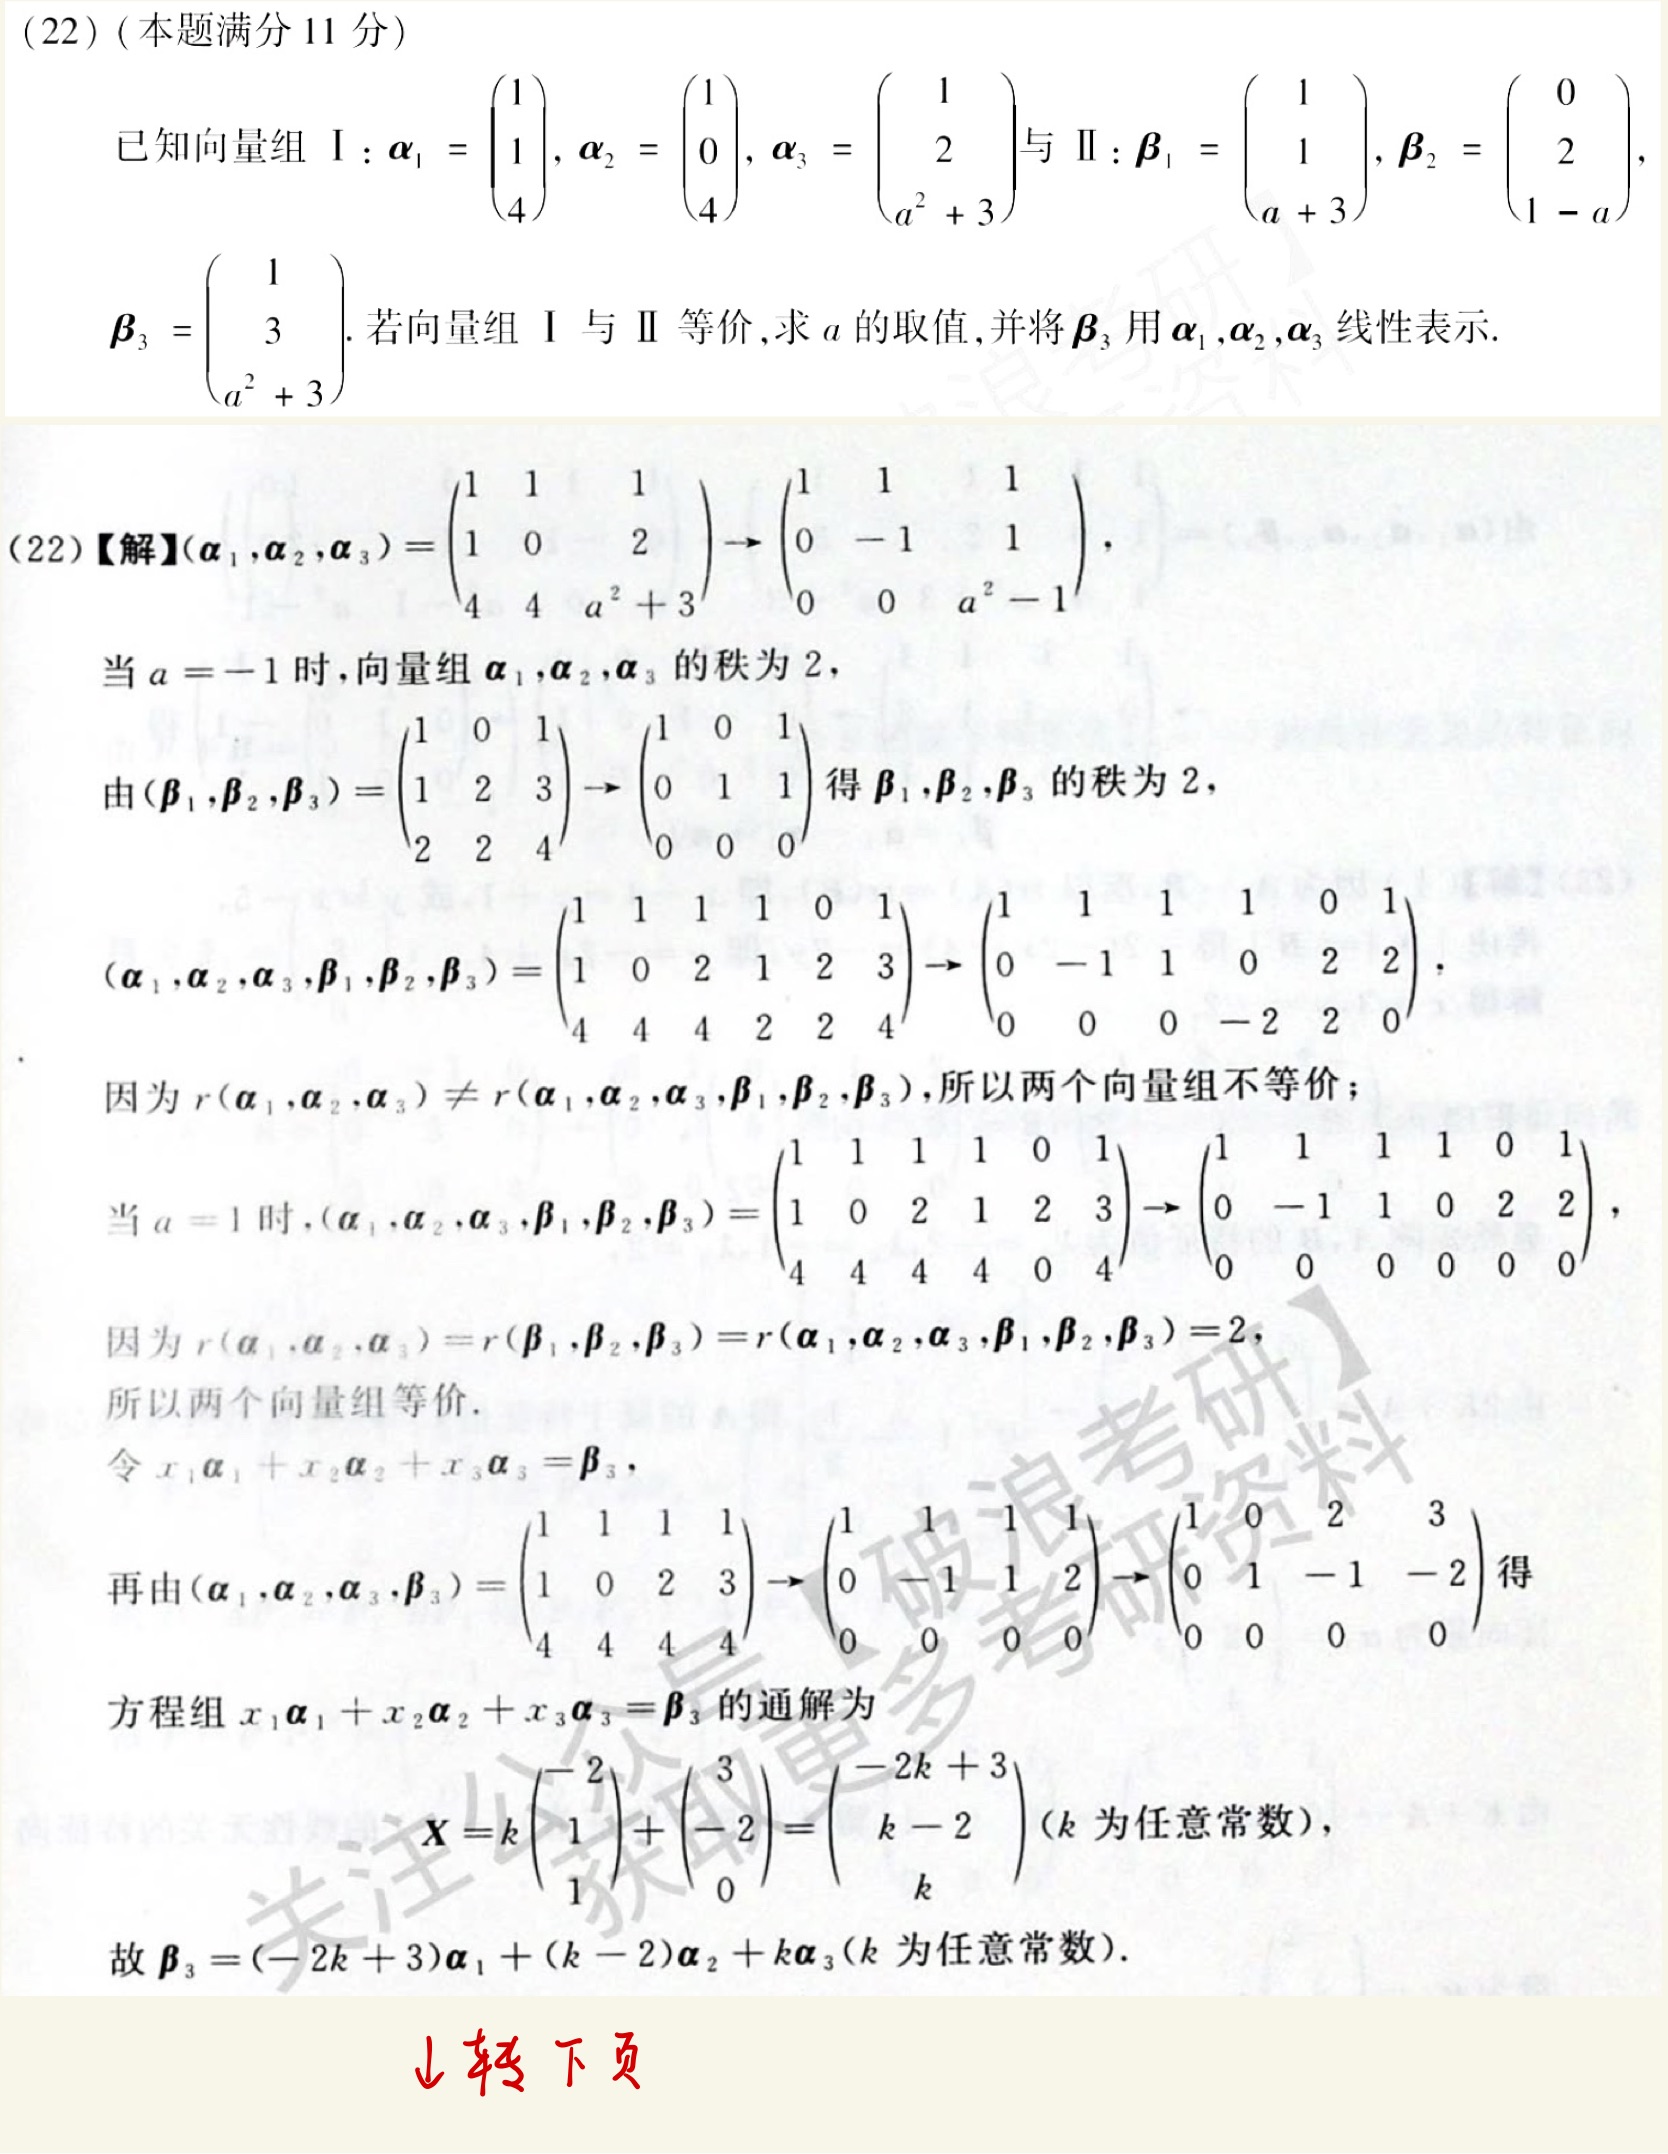 (22)(本题满分 11 分)
已知向量组 Ⅰ: α₁ = (1, 1, 4)ᵀ, α₂ = (1, 0, 4)ᵀ, α₃ = (1, 2, a² + 3)ᵀ 与 Ⅱ: β₁ = (1, 1, a + 3)ᵀ, β₂ = (0, 2, 1 - a)ᵀ,
β₃ = (1, 3, a² + 3)ᵀ. 若向量组 Ⅰ 与 Ⅱ 等价,求 a 的取值,并将 β₃ 用 α₁,α₂,α₃ 线性表示.
(22)【解】(α₁,α₂,α₃) = (1 1 1; 1 0 2; 4 4 a²+3) → (1 1 1; 0 -1 1; 0 0 a²-1),
当 a = -1 时,向量组 α₁,α₂,α₃ 的秩为 2,
由(β₁,β₂,β₃) = (1 0 1; 1 2 3; 2 2 4) → (1 0 1; 0 1 1; 0 0 0) 得 β₁,β₂,β₃ 的秩为 2,
(α₁,α₂,α₃,β₁,β₂,β₃) = (1 1 1 1 0 1; 1 0 2 1 2 3; 4 4 4 2 2 4) → (1 1 1 1 0 1; 0 -1 1 0 2 2; 0 0 0 -2 2 0).
因为 r(α₁,α₂,α₃) ≠ r(α₁,α₂,α₃,β₁,β₂,β₃),所以两个向量组不等价;
当 a = 1 时,(α₁,α₂,α₃,β₁,β₂,β₃) = (1 1 1 1 0 1; 1 0 2 1 2 3; 4 4 4 4 0 4) → (1 1 1 1 0 1; 0 -1 1 0 2 2; 0 0 0 0 0 0),
因为 r(α₁,α₂,α₃) = r(β₁,β₂,β₃) = r(α₁,α₂,α₃,β₁,β₂,β₃) = 2,
所以两个向量组等价.
令 x₁α₁ + x₂α₂ + x₃α₃ = β₃,
再由(α₁,α₂,α₃,β₃) = (1 1 1 1; 1 0 2 3; 4 4 4 4) → (1 1 1 1; 0 -1 1 2; 0 0 0 0) → (1 0 2 3; 0 1 -1 -2; 0 0 0 0) 得
方程组 x₁α₁ + x₂α₂ + x₃α₃ = β₃ 的通解为
X = k(-2, 1, 1)ᵀ + (3, -2, 0)ᵀ = (-2k + 3, k - 2, k)ᵀ (k 为任意常数),
故 β₃ = (-2k + 3)α₁ + (k - 2)α₂ + kα₃(k 为任意常数).
关注公众号【破浪考研】
获取更多考研资料
↓转下页